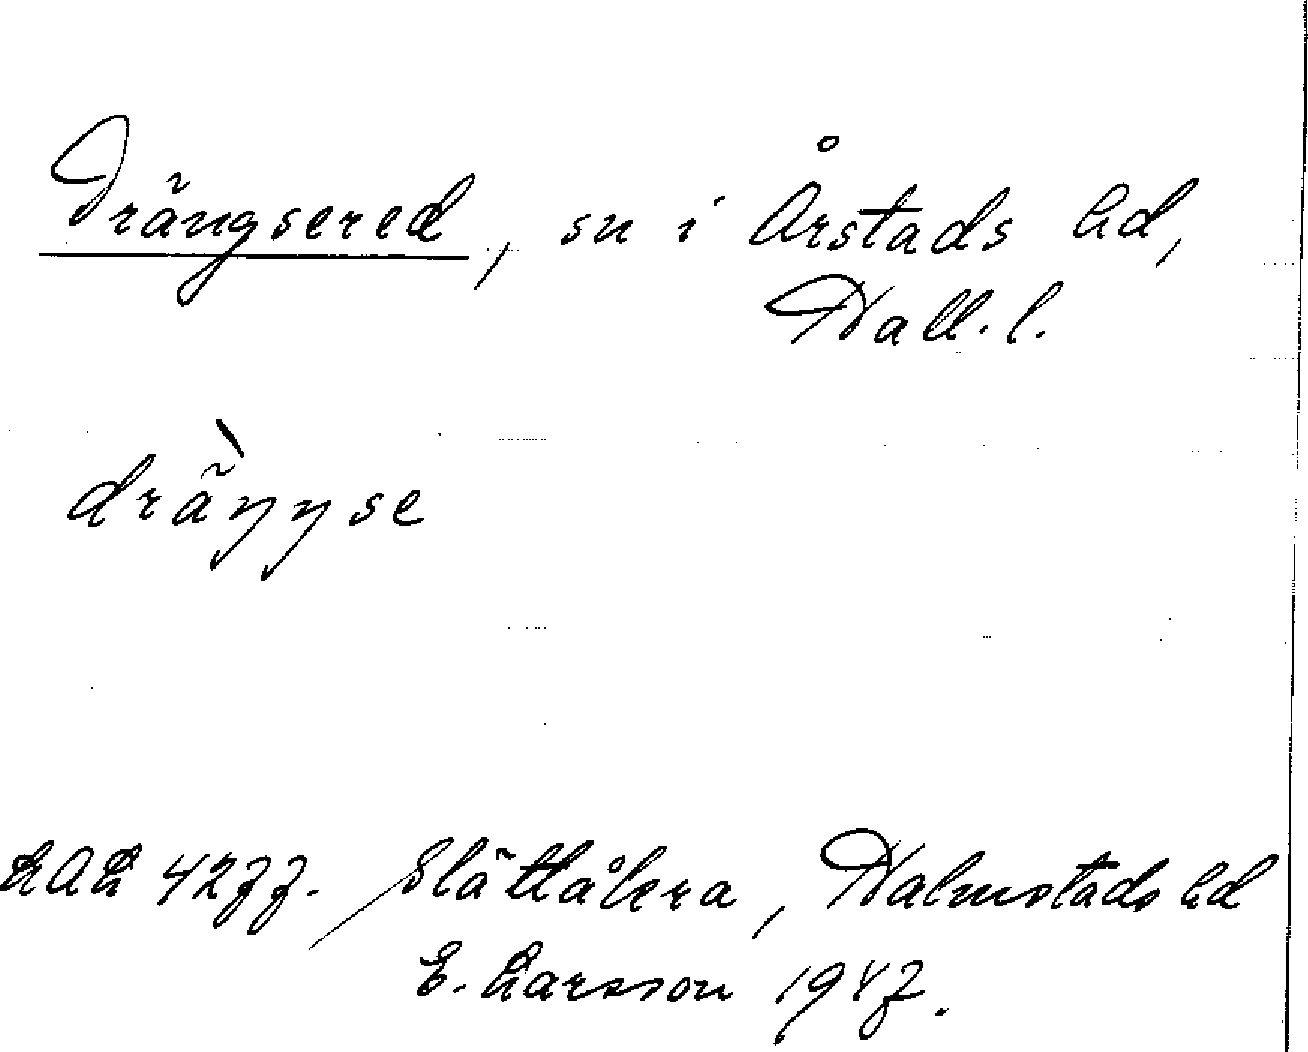 Drängsered, sn i Årstads hd,
Hall. l.
drä̀ŋŋse
LAL 4277. Slättåkra, Halmstads hd
E. Larsson 1947.